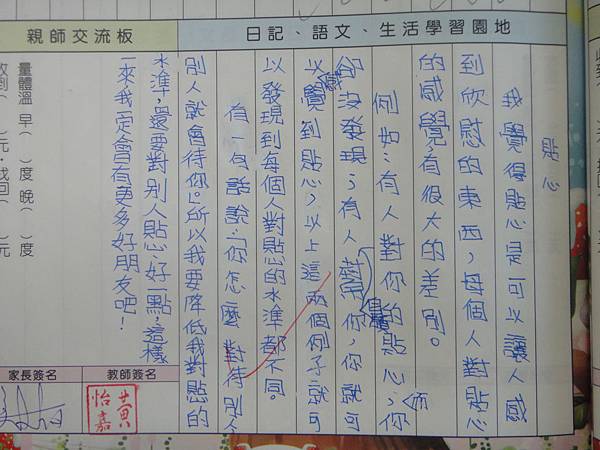 日記、語文、生活學習園地
貼心
我覺得貼心是可以讓人感
到欣慰的東西，每個人對貼心
的感覺，有很大的差別。
例如：有人對你的貼心，你
而
卻沒發現；有人對你，你就可
以感覺到貼心，以上這兩個例子就可
以發現到每個人對貼心的水準都不同。
有一句話說：「你怎麼對待別人
別人就會待你。」所以我要降低我對貼心的
水準，還要對別人貼心好一點，這樣
一來我一定會有更多好朋友吧！
親師交流板
量體溫 早（ ）度 晚（ ）度
收到（ ）元，找回（ ）元
教師簽名
黃怡嘉
家長簽名